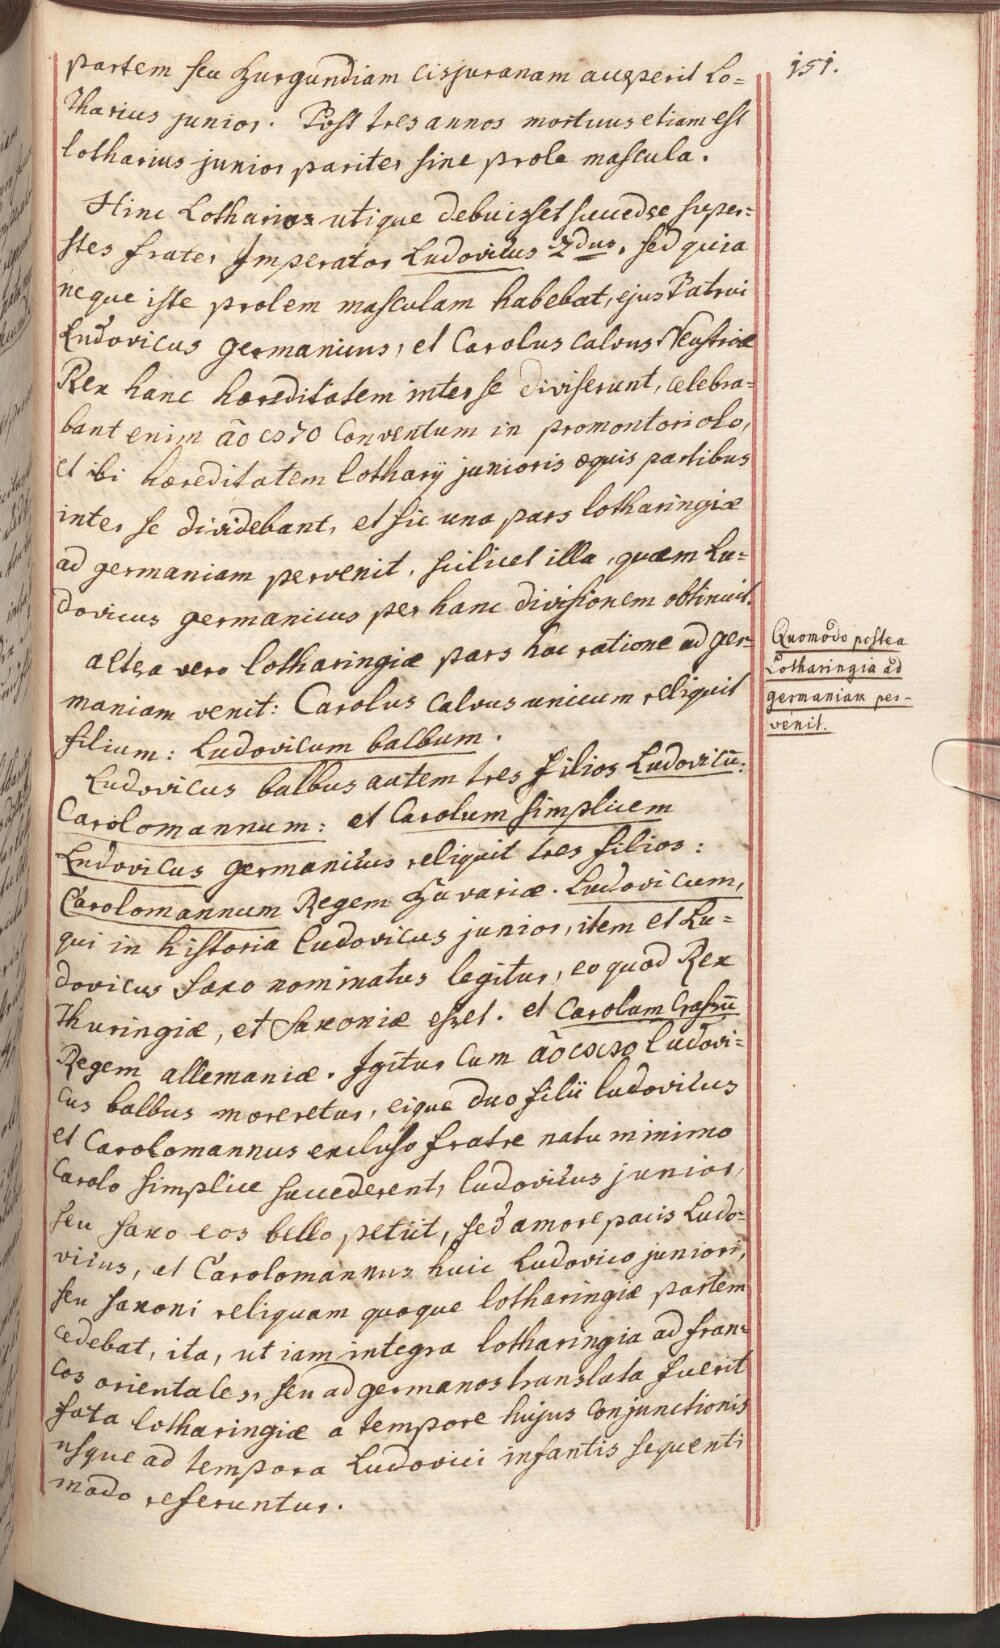 151.
partem seu Burgundiam cisjuranam acceperit Lo=
tharius junior. Post tres annos mortuus etiam est
lotharius junior pariter sine prole mascula.
Hinc Lotharios utique debuisset succedere super=
stes frater Imperator Ludovicus 2dus, sed quia
neque iste prolem masculam habebat, ejus Patrui
Ludovicus germanicus, et Carolus calvus Neustriæ
Rex hanc hæreditatem inter se diviserunt, celebra=
bant enim aō 870 Conventum in promontoriolo,
et ibi hæreditatem lotharÿ junioris æquis partibus
inter se dividebant, et sic una pars lotharingiæ
ad germaniam pervenit, scilicet illa, quam Lu=
dovicus germanicus per hanc divisionem obtinuit.
altera vero lotharingiæ pars hac ratione ad ger=
maniam venit: Carolus calvus unicum reliquit
filium: Ludovicum balbum.
Ludovicus balbus autem tres filios Ludovicū:
Carolomannum: et Carolum simplicem
Ludovicus germanicus reliquit tres filios:
Carolomannum Regem Bavariæ. Ludovicum,
qui in historia Ludovicus junior, item et Lu=
dovicus saxo nominatus legitur, eo quod Rex
Thuringiæ, et Saxoniæ esset. et Carolum Crassū
Regem allemaniæ. Igitur Cum aō ludovi=
cus balbus moreretur, eique duo filii ludovicus
et Carolomannus excluso fratre natu minimo
Carolo simplice succederent, ludovicus junior,
seu saxo eos bello petiit, sed amore pacis Ludo=
vicus, et Carolomannus huic Ludovico juniori,
seu saxoni reliquam quoque lotharingiæ partem
cedebat, ita, ut iam integra lotharingia ad fran=
cos orientales, seu ad germanos translata fuerit
fata lotharingiæ a tempore hujus Conjunctionis
usque ad tempora Ludovici infantis sequenti
modo referuntur.
Quomodo postea
Lotharingia ad
germaniam per=
venit.